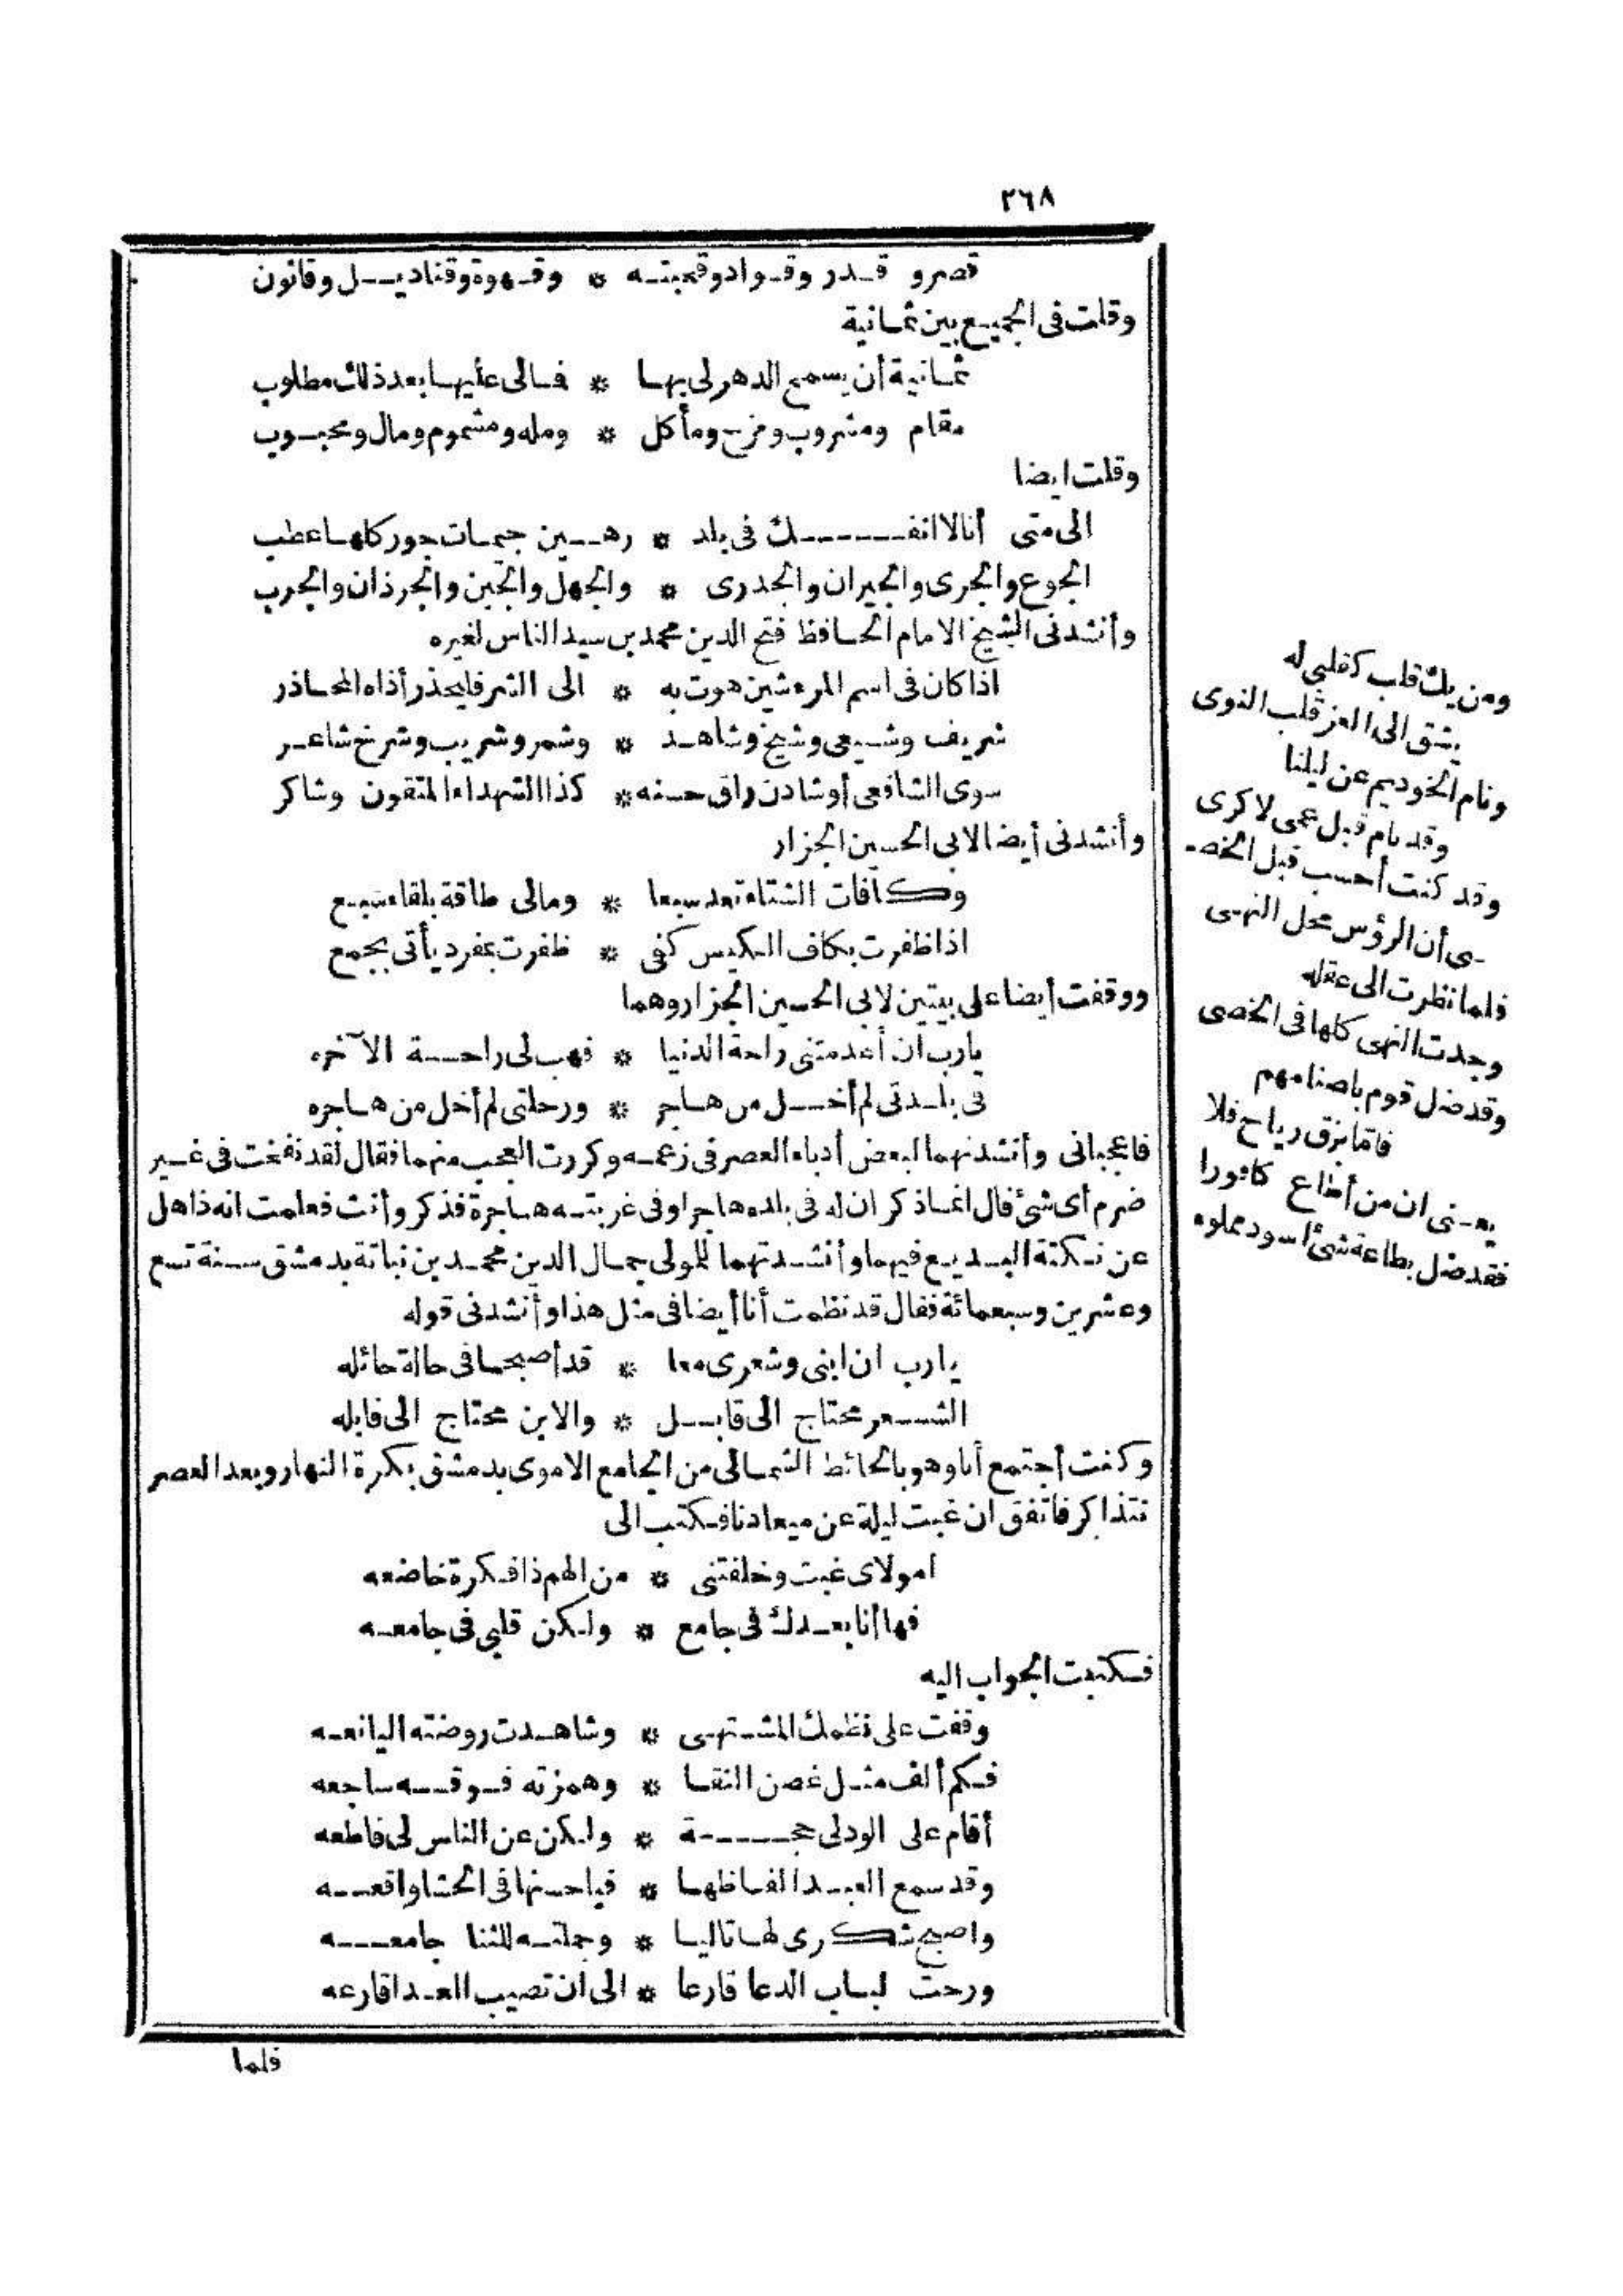 ٢٦٨
قصرو قدر وقواد وقحبته * وقهوة وقناديل وقانون
وقلت فى الجميع بين ثمانية
ثمانية أن يسمح الدهر لى بها * فالى عليها بعد ذلك مطلوب
مقام ومشروب ومزح ومأكل * ومله ومشموم ومال ومحبوب
وقلت ايضا
الى متى أنا لا انفك فى بلد * رهين جيمات جور كلها عطب
الجوع والجرى والجيران والجدرى * والجهل والجبن والجرذان والجرب
وأنشدنى الشيخ الامام الحافظ فتح الدين محمد بن سيد الناس لغيره
اذا كان فى اسم المرء شين هوت به * الى الشر فليحذر أذاه المحاذر
شريف وشيعى وشيخ وشاهد * وشمر وشريب وشرخ شاعر
سوى الشافعى أو شادن راق حسنه * كذا الشهداء المتقون وشاكر
وأنشدنى أيضا لابى الحسين الجزار
وكافات الشتاء تعد سبعا * ومالى طاقة بلقاء سبع
اذا ظفرت بكاف الكيس كفى * ظفرت بمفرد يأتى بجمع
ووقفت أيضا على بيتين لابى الحسين الجزار وهما
يارب ان أعدمتنى راحة الدنيا * فهب لى راحة الآخره
فى بلدتى لم أخل من هاجر * ورحلتى لم أخل من هاجره
فاعجبانى وأنشدنهما لبعض أدباء العصر فى زعمه وكررت العجب منهما فقال لقد نفخت فى غير
ضرم أى شئ قال انما ذكر ان له فى بلده هاجرا وفى غربته هاجرة فذكر وأنث فعلمت انه ذاهل
عن نكتة البديع فيهما وأنشدتهما للمولى جمال الدين محمد بن نباتة بدمشق سنة تسع
وعشرين وسبعمائة فقال قد نظمت أنا أيضا فى مثل هذا وأنشدنى قوله
يارب ان ابنى وشعرى معا * قد أصبحا فى حالة حائله
الشعر محتاج الى قابل * والابن محتاج الى قابله
وكنت أجتمع أنا وهو بالحائط الشمالى من الجامع الاموى بدمشق بكرة النهار وبعد العصر
نتذاكر فاتفق ان غبت ليلة عن ميعادنا فكتب الى
امولاى غبت وخلفتنى * من الهم ذا فكرة خاضعه
فها أنا بعدك فى جامع * ولكن قلبى فى جامعه
فكتبت الجواب اليه
وقفت على نظمك المشتهى * وشاهدت روضته اليانعه
فكم ألف مثل غصن النقا * وهمزته فوقه ساجعه
أقام على الود لى حجة * ولكن عن الناس لى قاطعه
وقد سمع العبد الفاظها * فياحسنها فى الحشا واقعه
واصبح شكرى لها تاليا * وجملته للثنا جامعه
ورحت لباب الدعا قارعا * الى أن تصيب العدا قارعه
فلما
ومن يك قلب كقلبى له
يشق الى العز قلب النوى
ونام الخوديم عن ليلنا
وقد نام قبل عمى لا كرى
وقد كنت أحسب قبل الخصـ
ـى أن الرؤس محل النهى
فلما نظرت الى عقله
وجدت النهى كلها فى الخصى
وقد ضل قوم باصنامهم
فاما بزق رياح فلا
يعنى ان من أطاع كافورا
فقد ضل بطاعة شئ أسود مملوء